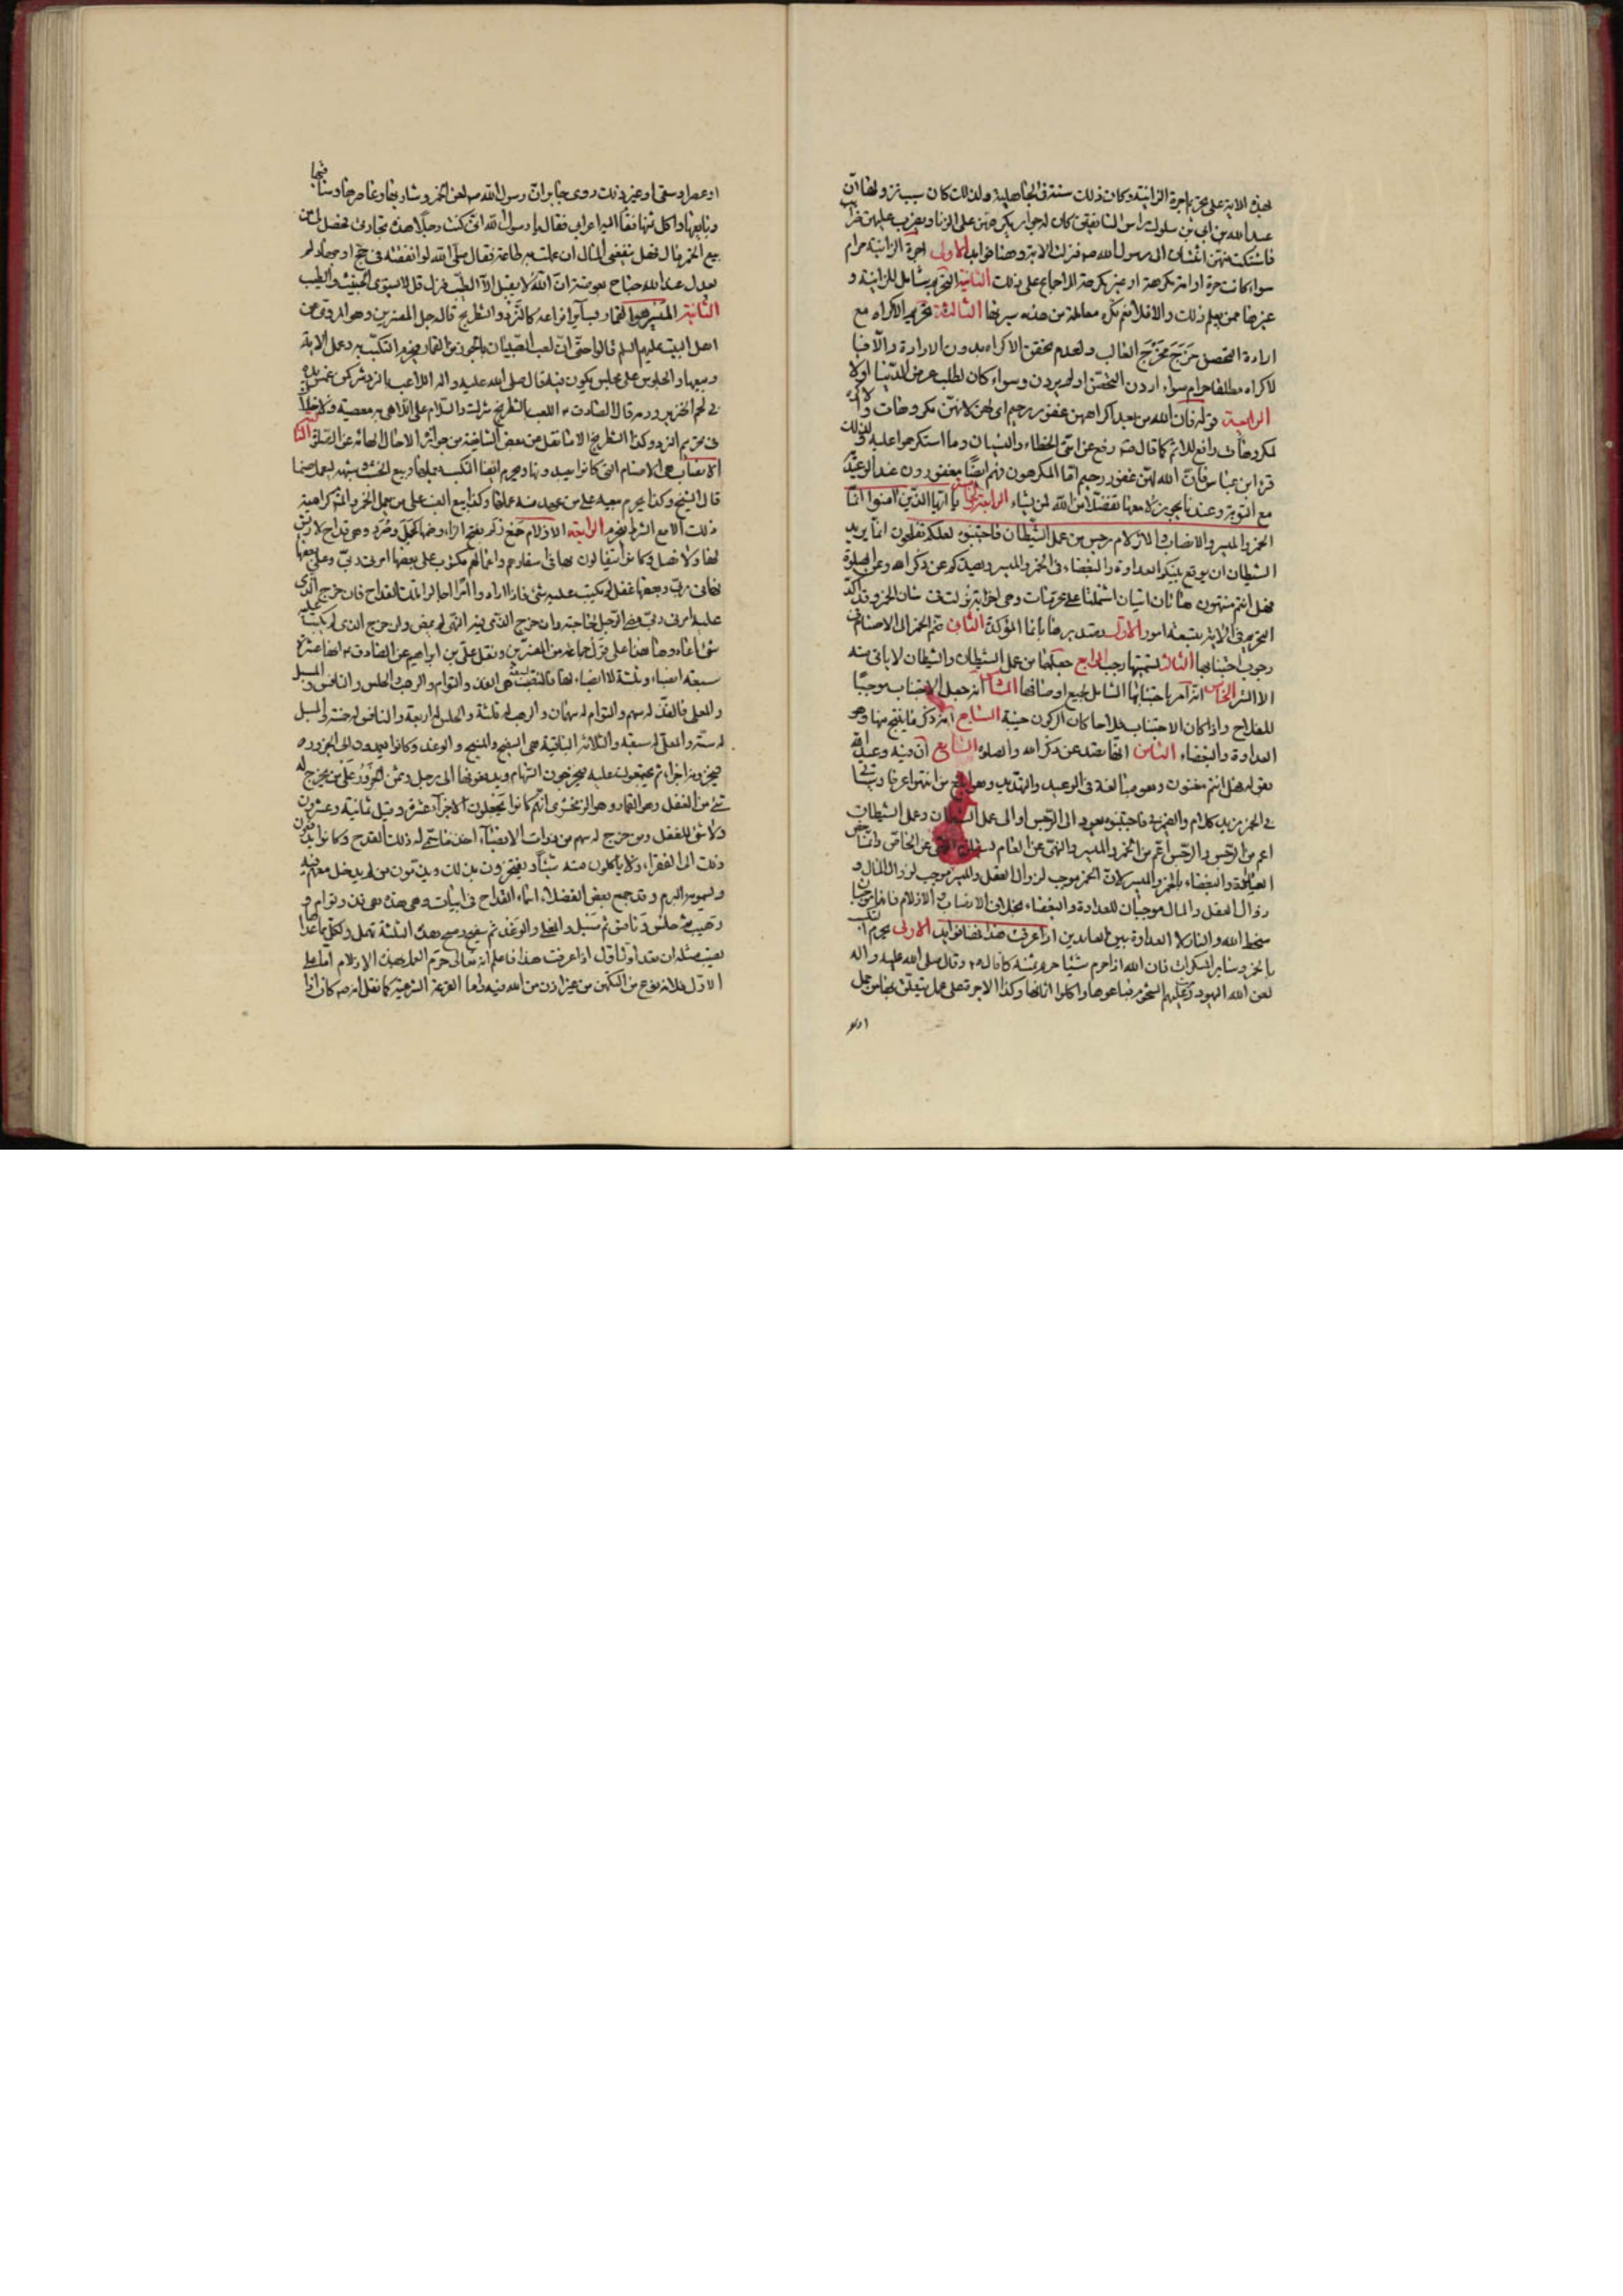 بهذه الاية على تحريم اجرة الزانية وكان ذلك سنة في الجاهلية ولذلك كان سبب نزولها ان
عبد الله بن ابي بن سلول راس المنافقين كان له جوار يكرههن على الزنا ويضرب عليهن ضرائب
فاشتكت منهن اثنتان الى رسول الله صه فنزلت الاية وهنا فوايد الاولى اجرة الزانية حرام
سواء كانت حرة او امة مكرهة او غير مكرهة للاجماع على ذلك الثانية التحريم شامل للزانية و
غيرها ممن يعلم ذلك والا فلا نعم تكره معاملة من هذه سيرتها الثالثة تحريم الاكراه مع
ارادة التحصن خرج مخرج الغالب ولعدم تحقق الاكراه بدون الارادة والا فا
لاكراه مطلقا حرام سواء اردن التحصن او لم يردن وسواء كان لطلب عرض الدنيا اولا
الرابعة قوله فان الله من بعد اكراههن غفور رحيم اى لهن لانهن مكروهات والاكراه
لمكروهات رافع للاثم كما قال صه رفع عن امتي الخطاء والنسيان وما استكرهوا عليه وكذلك
قرا ابن عباس فان الله لهن غفور رحيم اما المكرهون فهم ايضا مغفورون عند الوعيد
مع التوبة وعندنا يجوز لا معها تفضلا من الله لمن يشاء الرابعة يا ايها الذين امنوا انما
الخمر والميسر والانصاب والازلام رجس من عمل الشيطان فاجتنبوه لعلكم تفلحون انما يريد
الشيطان ان يوقع بينكم العداوة والبغضاء في الخمر والميسر ويصدكم عن ذكر الله وعن الصلوة
فهل انتم منتهون هاتان ايتان اشتملتا على محرمات وهى اخر اية نزلت في شان الخمر وقد اكد
التحريم في الاية بتسعة امور الاول تصديرها بانما المؤكدة الثاني ضم الخمر الى الاصنام في
وجوب اجتنابها الثالث تسميتها رجسا الرابع جعلها من عمل الشيطان والشيطان لا ياتي منه
الا الشر الخامس انه امر باجتنابها الشامل لجميع اوصافها السادس انه جعل الاجتناب موجبا
للفلاح واذا كان الاجتناب فلاحا كان الركون خيبة السابع انه ذكر ما ينتج منها وهو
العداوة والبغضاء الثامن انها تصد عن ذكر الله والصلوة التاسع ان فيه وعيد الله
بقوله فهل انتم منتهون وهو مبالغة في الوعيد والتهديد وهو ابلغ من انتهوا عرفا وسياتي
في الخمر مزيد كلام والضمير في فاجتنبوه يعود الى الرجس او الى عمل الشيطان وعمل الشيطان
اعم من الرجس والرجس اعم من الخمر والميسر والنهى عن العام يستلزم النهى عن الخاص وانما خص
العداوة والبغضاء بالخمر والميسر لان الخمر موجب لزوال العقل والميسر موجب لزوال المال و
زوال العقل والمال موجبان للعداوة والبغضاء بخلاف الانصاب والازلام فانهما موجبان
سخط الله والنار لا العداوة بين العابدين اذا عرفت هذا فهنا فوايد الاولى يحرم التكسب
بالخمر وساير المسكرات فان الله اذا حرم شيئا حرم ثمنه كما قاله ع وقال صلى الله عليه واله
لعن الله اليهود حرمت عليهم الشحوم فباعوها واكلوا اثمانها وكذا الاجرة على عمل يتعلق بها من حمل
او عصر او سقى او غير ذلك روى جابر ان رسول الله صه لعن الخمر وشاربها وعاصرها وساقيها
وبايعها واكل ثمنها فقام اليه اعرابي فقال يا رسول الله انى كنت رجلا هذه تجارتي فحصل لى من
بيع الخمر مال فهل ينفعنى المال ان عملت به طاعة فقال صلى الله لو انفقته في حج او جهاد لم
يعدل عند الله جناح بعوضة ان الله لا يقبل الا الطيب فنزل قل لا يستوى الخبيث والطيب
الثانية الميسر هو القمار بساير انواعه كالنرد والشطرنج قاله جل المفسرين وهو المروى عن
اهل البيت عليهم السلم قالوا حتى ان لعب الصبيان بالجوز من القمار فيحرم التكسب به وعمل الاية
وبيعها والجلوس على مجلس يكون فيه قال صلى الله عليه واله اللاعب بالنرد شرك كمن غمس يده
في لحم الخنزير ودمه قال الصادق ع اللعب بالشطرنج شرك والسلام على اللاهى به معصية ولا خلاف
في تحريم النرد وكذا الشطرنج الا ما نقل عن بعض الشافعية من جوازه الا حال الهائه عن الصلوة الثالثة
الانصاب هى الاصنام التي كانوا يعبدونها ويحرم ايضا التكسب بعملها وبيع الخشب ممن يعمل صنما
قال الشيخ وكذا يحرم بيعه على من عهد منه عملها وكذا بيع العنب على من يعمل الخمر والمشهور كراهية
ذلك الا مع الشرط فيحرم الرابعة الازلام جمع زلم بفتح الزاء وضمها كجمل وصرد وهى قداح لا ريش
لها ولا نصل وكانوا يتفالون بها في اسفارهم واعمالهم مكتوب على بعضها امرنى ربى وعلى بعضها
نهانى ربى وبعضها غفل لم يكتب عليه شئ فاذا ارادوا امرا اجالوا تلك القداح فان خرج الذى
عليه امرنى ربى مضى الرجل لحاجته وان خرج الذى فيه النهى لم يمض وان خرج الذى لم يكتب عليه
شئ اعادوها هذا على قول جماعة من المفسرين ونقل علي بن ابراهيم عن الصادق ع انها عشرة
سبعة انصباء وثلثة لا انصباء لها فالتى لها انصباء هى الفذ والتوام والرقيب والحلس والنافس والمسبل
والمعلى فالفذ له سهم والتوام له سهمان والرقيب له ثلثة والحلس له اربعة والنافس له خمسة والمسبل
له ستة والمعلى له سبعة والثلاثة الباقية هى السفيح والمنيح والوغد وكانوا يعمدون الى الجزور
فيجزونه اجزاء ثم يجتمعون عليه فيخرجون السهام ويدفعونها الى رجل وثمن الجزور على من يخرج له
شئ من الغفل وهو القمار وهو الزمخشرى انهم كانوا يجعلون الاجزاء عشرة وقيل ثمانية وعشرون
ولا شئ للغفل ومن خرج له سهم من ذوات الانصباء اخذ ما سمى له ذلك القدح وكانوا يدفعون
ذلك الى الفقراء ولا ياكلون منه شيئا ويفتخرون بذلك ويذمون من لم يدخل معهم فيه
ويسمونه البرم وقد جمع بعض الفضلاء اسماء القداح في ابيات وهى هذه هى فذ وتوام و
رقيب ثم حلس ونافس ثم مسبل والمعلى والوغد ثم سفيح ومنيح هذى الثلثة تهمل ولكل مما عداها
نصيب مثله ان تعد اول اول اذا عرفت هذا فاعلم انه تعالى حرم العمل بهذه الازلام اما على
الاول فلانه نوع من التكهن من غير اذن من الله فيه واما القرعة الشرعية كما نقل انه صه كان اذا